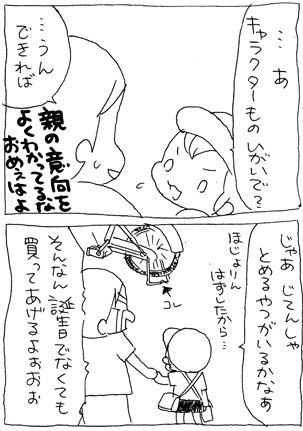 …あ
キャラクターもの
ひがいで？
…うん
できれば
親の意向を
よくわかってるな
おめぇはよ
じゃあ じてんしゃ
とめるやつがいるかなあ
ほじょりん
はずしたから…
コレ
そんなん 誕生日でなくても
買ってあげるよぉぉぉ